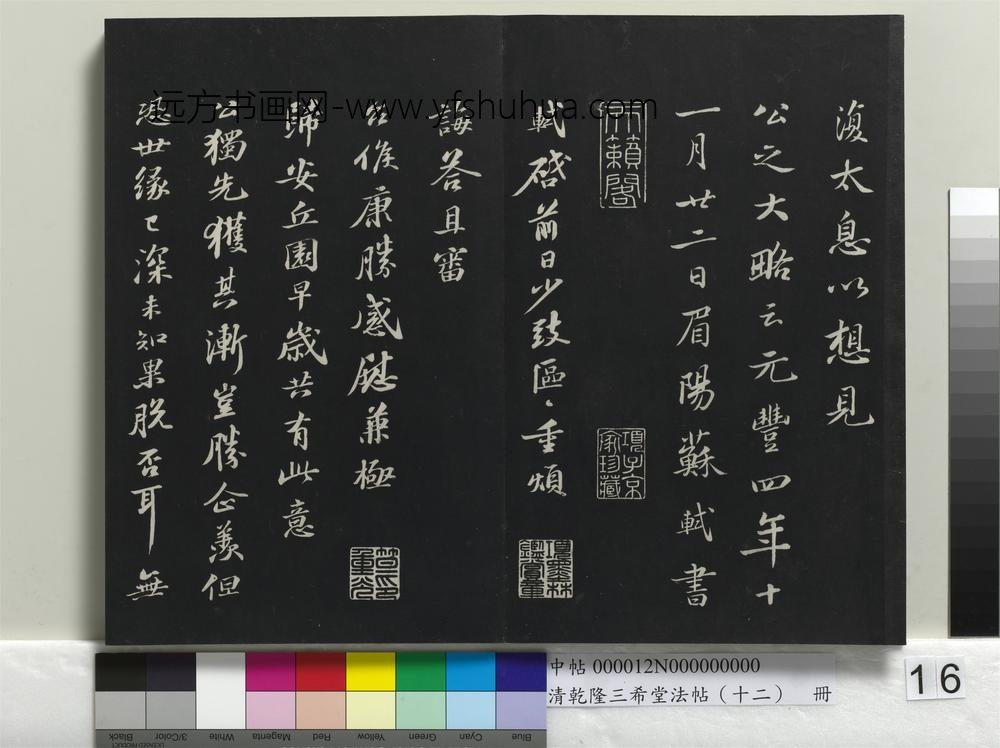 澓太息以想見
公之大略云元豐四年十
一月廿二日眉陽蘇軾書
天籟閣
項子京家珍藏
軾啓前日少致區〻重煩
項墨林鑑賞章
誨答且審
台候康勝感慰兼極
歸安丘園早歲共有此意
公獨先獲其漸豈勝企羨但
恐世緣已深未知果脫否耳無
远方书画网-www.yfshuhua.com
中帖 000012N000000000
清乾隆三希堂法帖（十二） 冊
16
Black
3/Color
White
Magenta
Red
Yellow
Green
Cyan
Blue